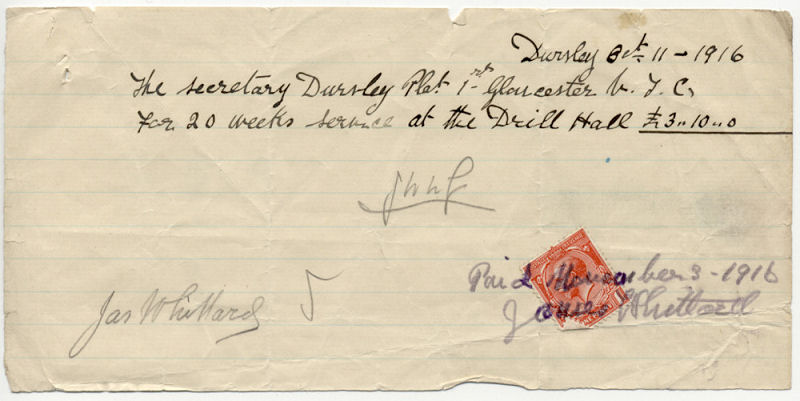 Dursley Oct 11 - 1916
The secretary Dursley Plat 1st Gloucester V. T. C.
For 20 weeks service at the Drill Hall £3 „ 10 „ 0
Paid November 3 - 1916
Jas Whittard
James Whittard